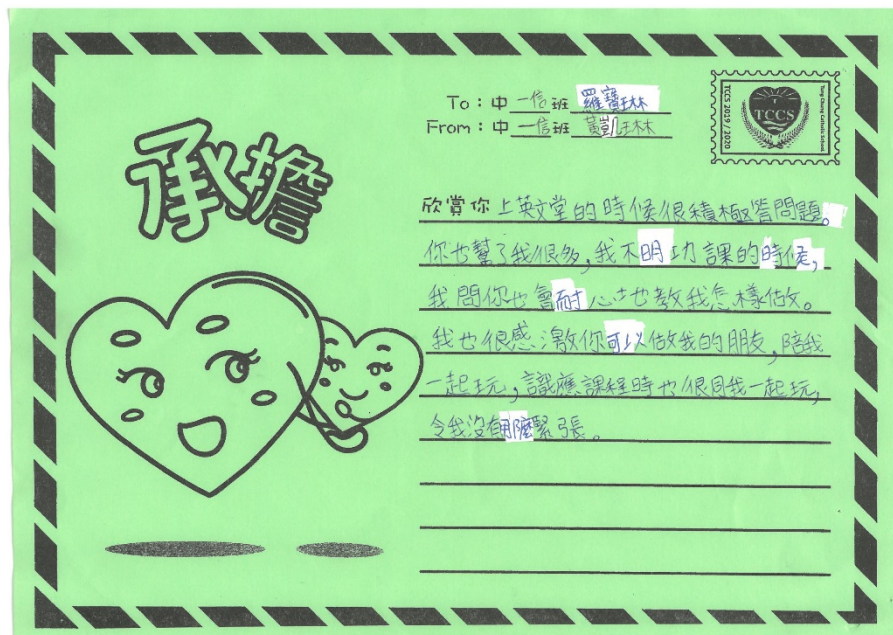 承擔
To：中一信班 羅寶琳
From：中一信班 黃凱琳
TCCS 2019 / 2020
TCCS
Tung Chung Catholic School
欣賞你上英文堂的時候很積極答問題。
你也幫了我很多，我不明功課的時候，
我問你也會耐心地教我怎樣做。
我也很感激你可以做我的朋友，陪我
一起玩，識應課程時也很同我一起玩，
令我沒有那麼緊張。